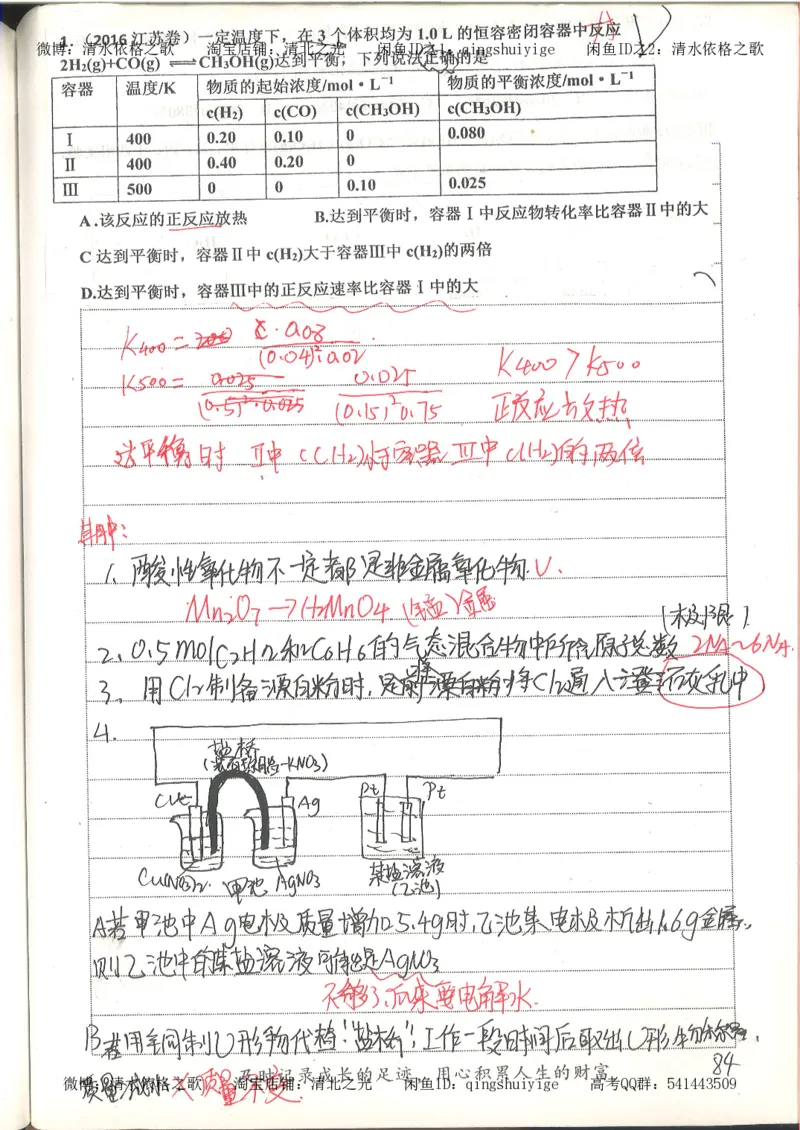 1.（2016江苏卷）一定温度下，在3个体积均为1.0 L的恒容密闭容器中反应
微博：清水依格之歌 淘宝店铺：清北之光 闲鱼ID之1：qingshuiyige 闲鱼ID之2：清水依格之歌
2H₂(g)+CO(g) ⇌ CH₃OH(g)达到平衡，下列说法正确的是
容器 温度/K 物质的起始浓度/mol·L⁻¹ 物质的平衡浓度/mol·L⁻¹
c(H₂) c(CO) c(CH₃OH) c(CH₃OH)
Ⅰ 400 0.20 0.10 0 0.080
Ⅱ 400 0.40 0.20 0
Ⅲ 500 0 0 0.10 0.025
A.该反应的正反应放热 B.达到平衡时，容器Ⅰ中反应物转化率比容器Ⅱ中的大
C 达到平衡时，容器Ⅱ中 c(H₂)大于容器Ⅲ中 c(H₂)的两倍
D.达到平衡时，容器Ⅲ中的正反应速率比容器Ⅰ中的大
K400 = 0.08
(0.04)²·0.02
K400 > K500
K500 = 0.025
(0.15)²0.75
正反应放热
达平衡时 Ⅱ中 c(H₂)大于容器Ⅲ中 c(H₂)的两倍
期中：
1、酸性氧化物不一定都是非金属氧化物. √.
Mn₂O₇→HMnO₄ (锰)金属
(极限)
2、0.5mol C₂H₂和C₆H₆的气态混合物中所含原子总数 2NA~6NA.
3、用Cl₂制备漂白粉时，是将Cl₂通入澄清石灰乳中
4.
盐桥
(装有琼脂-KNO₃)
Cu Ag Pt Pt
Cu(NO₃)₂ 甲池 AgNO₃
某盐溶液
(乙池)
A若甲池中Ag电极质量增加5.4g时,乙池某电极析出1.6g金属,
则乙池中的某盐溶液可能是AgNO₃
不够了,后来要电解水.
B若用铜制U形物代替"盐桥",工作一段时间后取出U形物称量,
84
及时记录成长的足迹，用心积累人生的财富
微博：清水依格之歌 淘宝店铺：清北之光 闲鱼ID：qingshuiyige 高考QQ群：541443509
质量 × 质量不变.